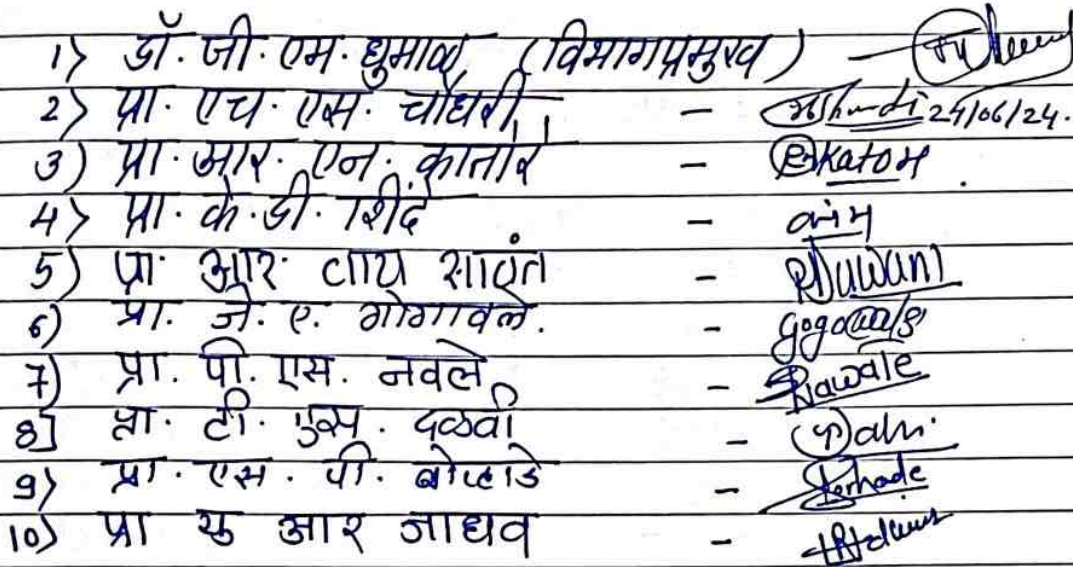 1) डॉ. जी. एम. धुमाळ (विभागप्रमुख) -
2) प्रा. एच. एस. चौधरी - 24/06/24.
3) प्रा. आर. एन. कातोरे - RKatore
4) प्रा. के. डी. शिंदे -
5) प्रा. आर. वाय सावंत -
6) प्रा. जे. ए. गोगावले. -
7) प्रा. पी. एस. नवले - Nawale
8] प्रा. टी. एस. दळवी -
9) प्रा. एस. पी. बोऱ्हाडे -
10) प्रा यु आर जाधव -